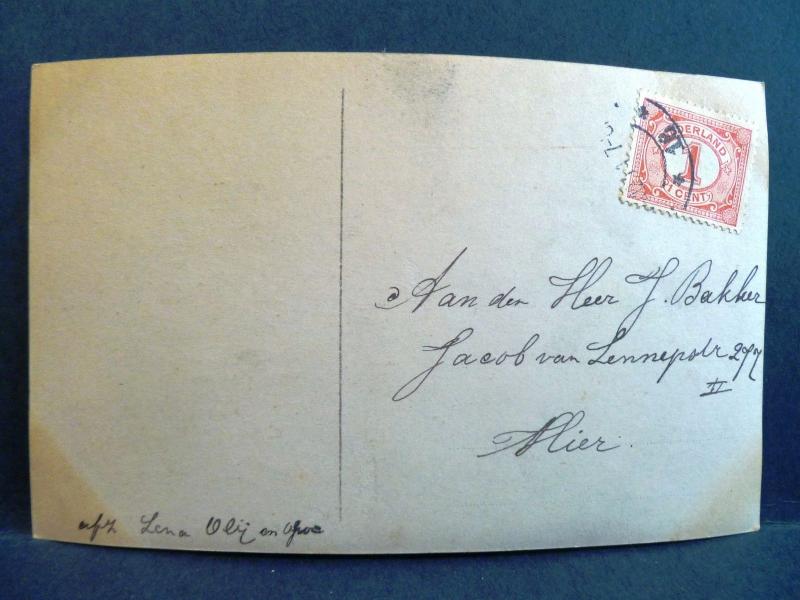 NEDERLAND
1
1 CENT
Aan den Heer J. Bakker
Jacob van Lennepstr 297
II
Alhier.
afz Lena Olij en Opoe